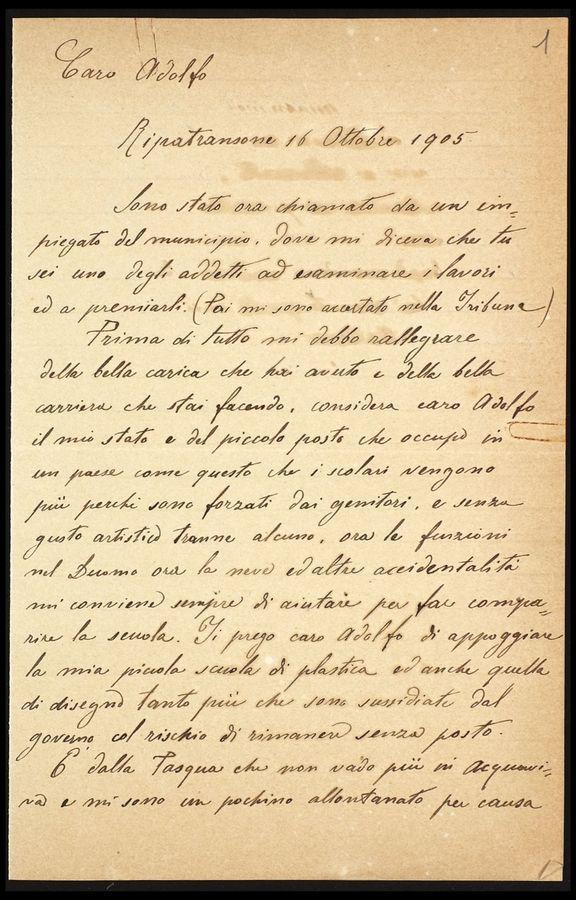 1
Caro Adolfo
Ripatransone 16 Ottobre 1905
Sono stato ora chiamato da un im=
piegato del municipio, dove mi diceva che tu
sei uno degli addetti ad esaminare i lavori
ed a premiarli. (Poi mi sono accertato nella Tribuna)
Prima di tutto mi debbo rallegrare
della bella carica che hai avuto e della bella
carriera che stai facendo, considera caro Adolfo
il mio stato e del piccolo posto che occupo in
un paese come questo che i scolari vengono
più perchè sono forzati dai genitori, e senza
gusto artistico tranne alcuno, ora le funzioni
nel Duomo ora la neve ed altre accidentalità
mi conviene sempre di aiutare per far compa=
rire la scuola. Ti prego caro Adolfo di appoggiare
la mia piccola scuola di plastica ed anche quella
di disegno tanto più che sono sussidiate dal
governo col rischio di rimanere senza posto.
E' dalla Pasqua che non vado più in Acquavi=
va e mi sono un pochino allontanato per causa